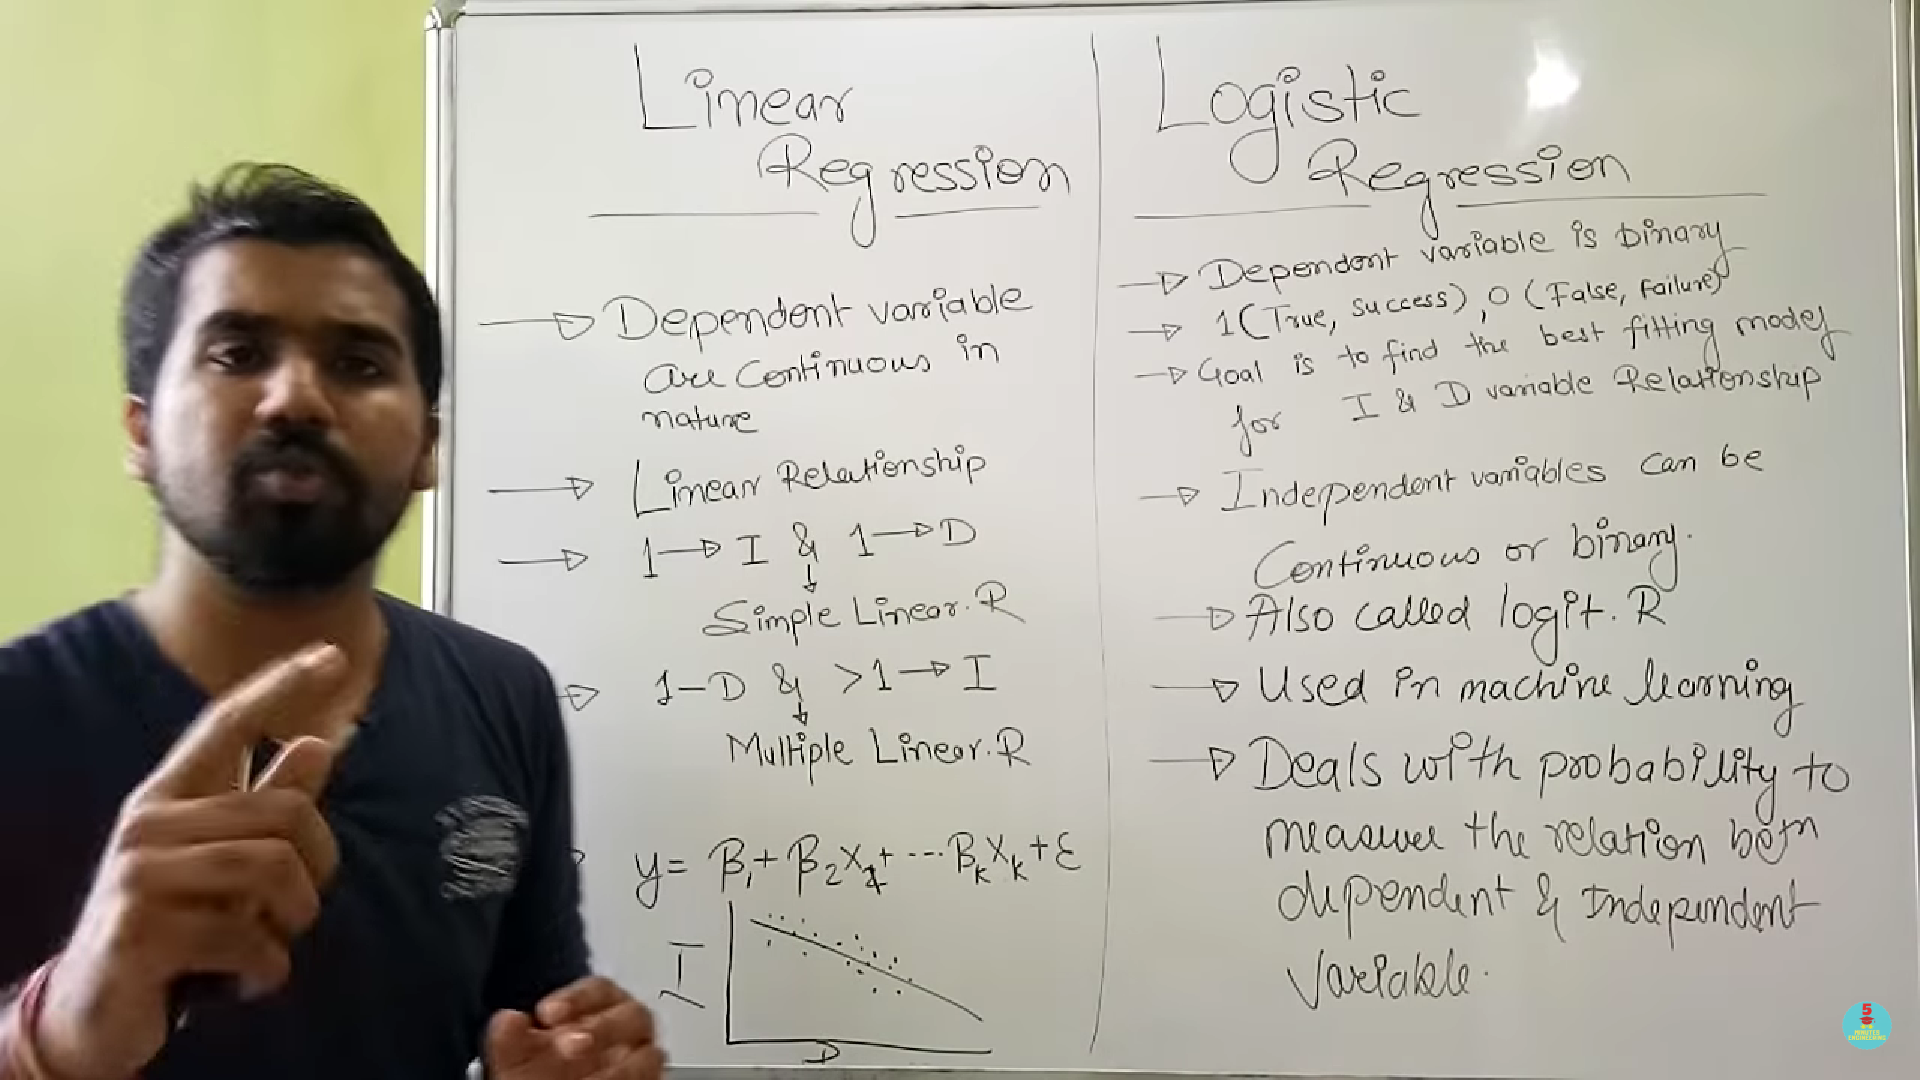 Linear
Regression
→ Dependent variable
are continuous in
nature
→ Linear Relationship
→ 1→I & 1→D
↓
Simple Linear.R
→ 1-D & >1→I
↓
Multiple Linear.R
y= β₁+ β₂X₁+ ---BₖXₖ+ε
I
D
Logistic
Regression
→ Dependent variable is binary
→ 1(True, success), 0 (False, failure)
→ Goal is to find the best fitting model
for I & D variable Relationship
→ Independent variables can be
Continuous or binary.
→ Also called logit.R
→ Used in machine learning
→ Deals with probability to
measure the relation betn
dependent & Independent
Variable.
5
MINUTES
ENGINEERING